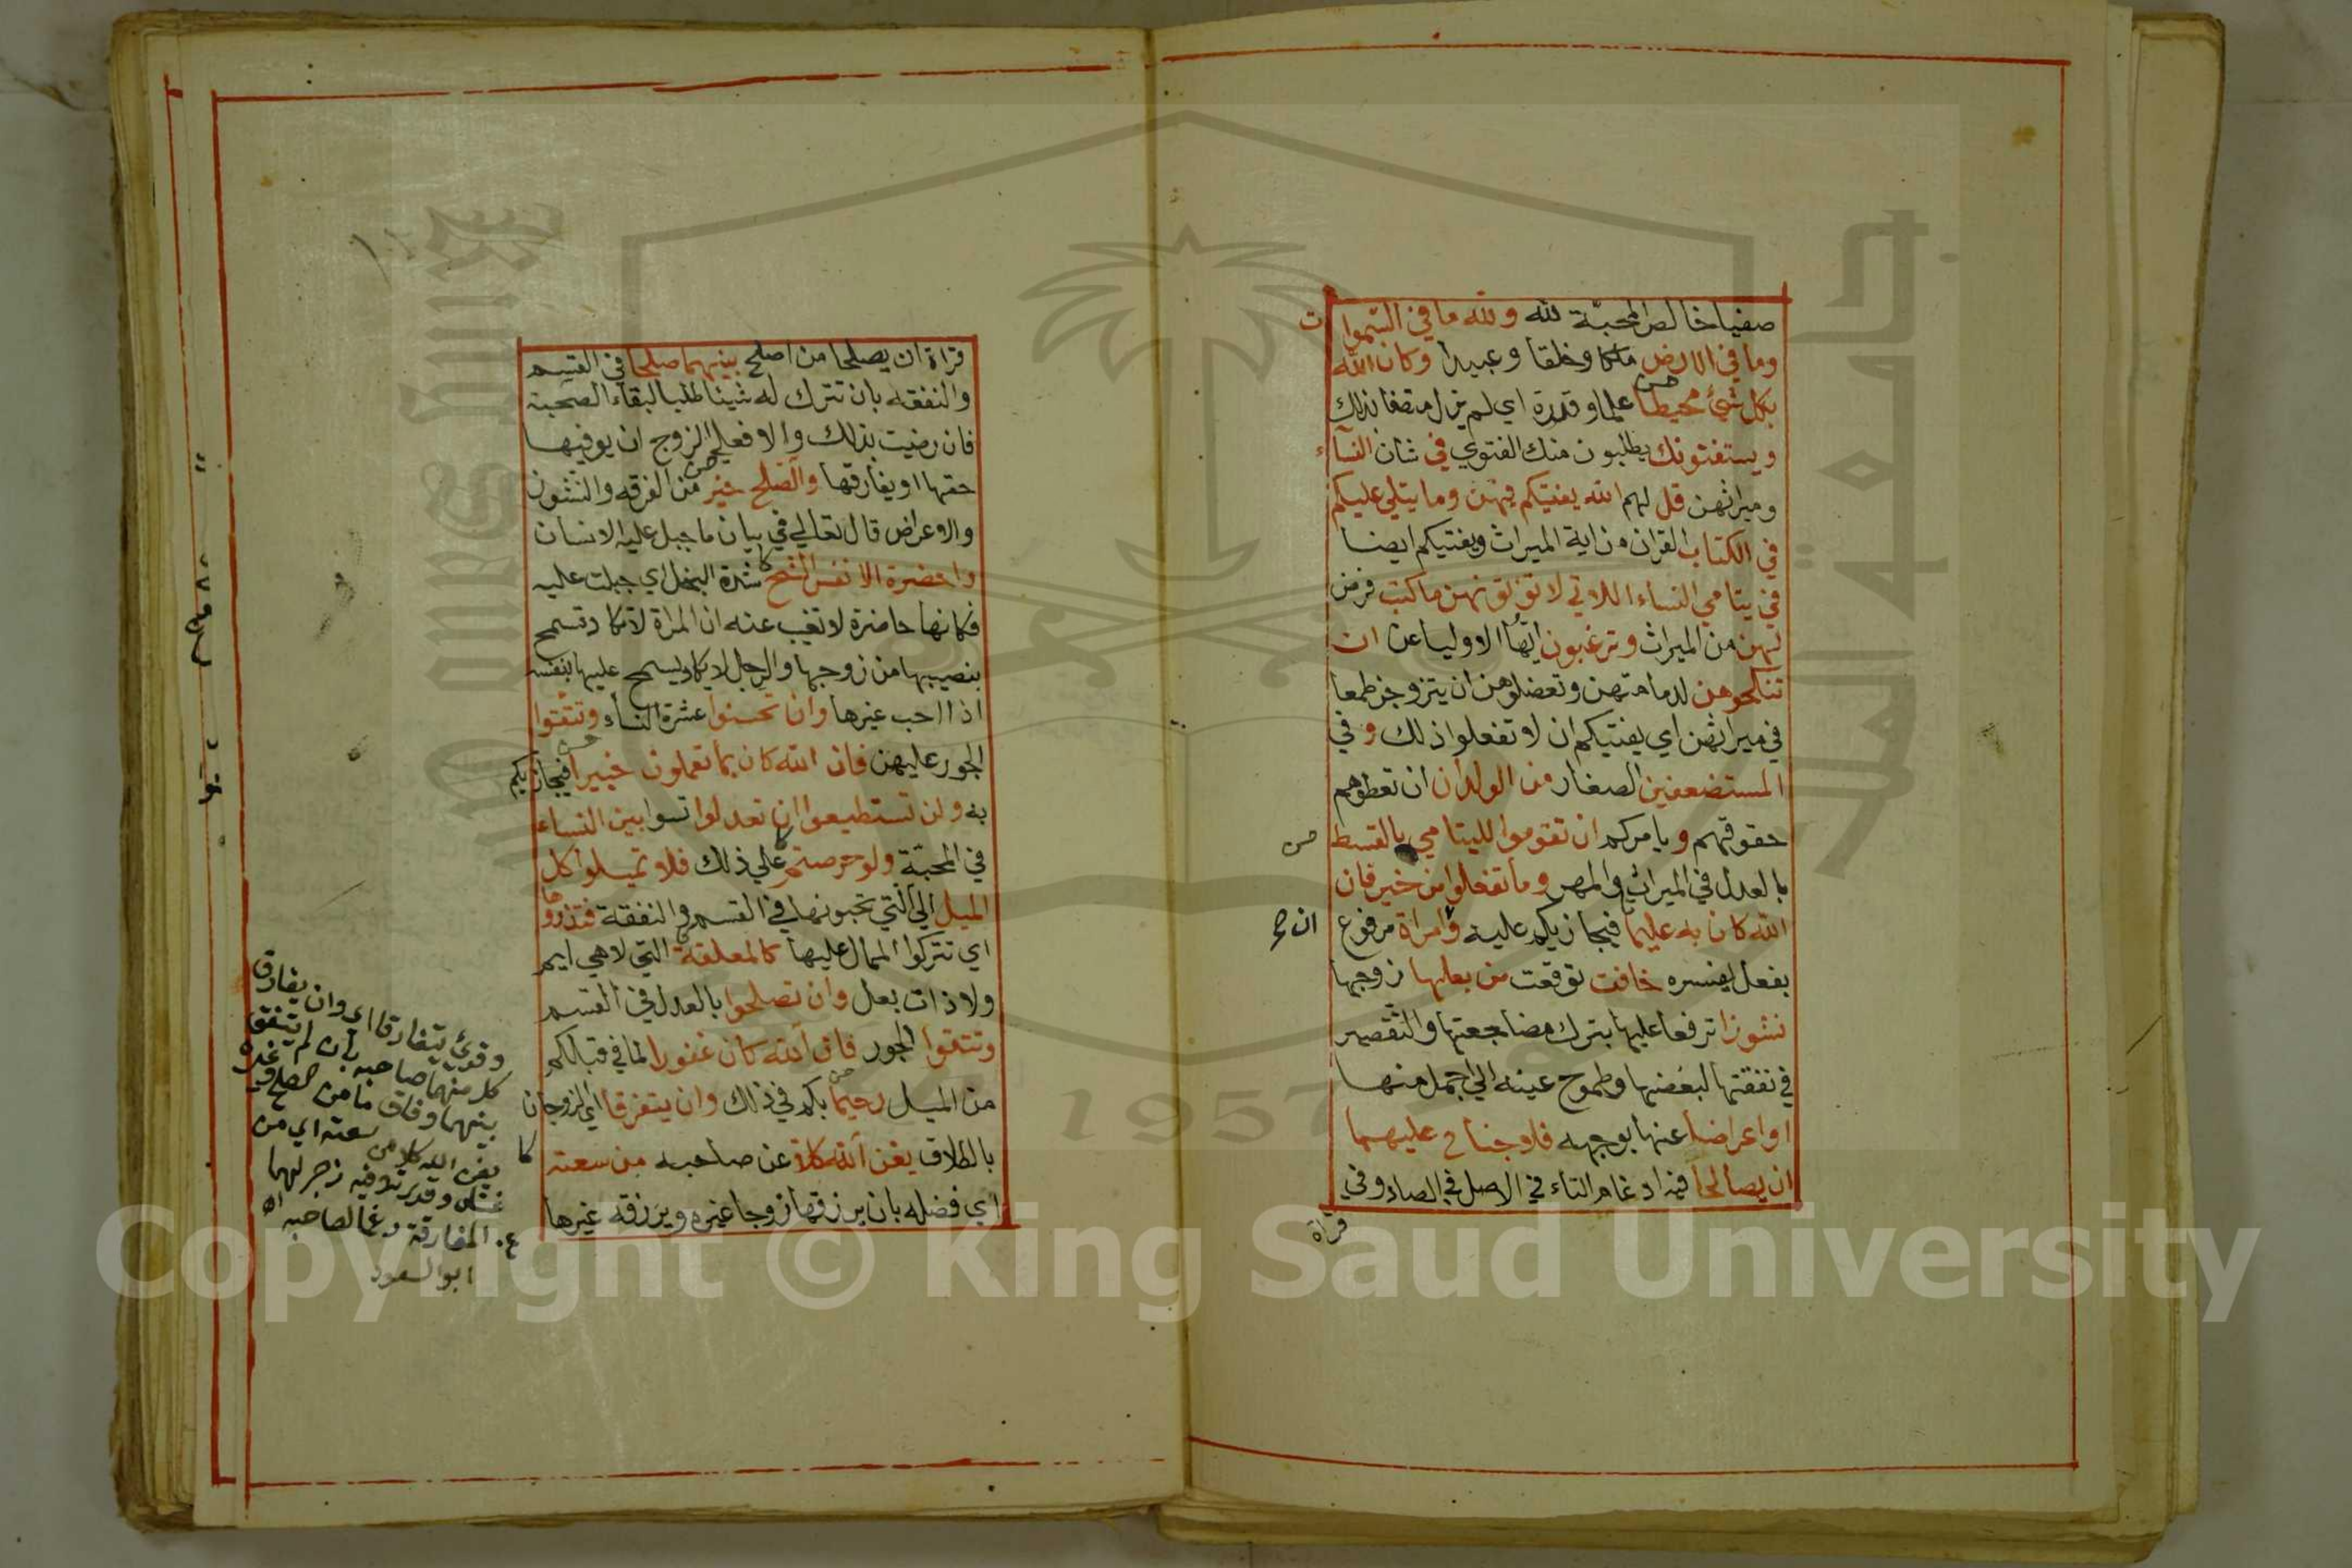 صفيا خالص المحبّة لله ولله ما في السّموات
وما في الارض ملكا وخلقا وعبيدا وكان الله
بكل شيئ محيطا علما وقدرة اي لم يزل متصفا بذلك
ويستفتونك يطلبون منك الفتوي في شان النسآء
وميراثهن قل لهم الله يفتيكم فيهن وما يتلي عليكم
في الكتاب القران من اية الميراث ويفتيكم ايضا
في يتامي النساء اللاتي لا تؤتونهن ما كتب فرض
لهن من الميراث وترغبون ايها الاوليا عن ان
تنكحوهن لدمامتهن وتعضلوهن ان يتزوجن طمعا
في ميراثهن اي يفتيكم ان لا تفعلوا ذلك و في
المستضعفين الصغار من الولدان ان تعطوهم
حقوقهم ويامركم ان تقوموا لليتامي بالقسط
بالعدل في الميراث والمهر وما تفعلوا من خير فان
الله كان به عليما فيجازيكم عليه وامراة مرفوع
بفعل يفسره خافت توقعت من بعلها زوجها
نشوزا ترفعا عليها بترك مضاجعتها والتقصير
في نفقتها لبغضها وطموح عينه الي اجمل منها
او اعراضا عنها بوجهه فلا جناح عليهما
ان يصالحا فيه ادغام التاء في الاصل في الصاد وفي
قراة
قراة ان يصلحا من اصلح بينهما صلحا في القسم
والنفقه بان تترك له شيئا طلبا لبقاء الصحبة
فان رضيت بذلك والا فعلي الزوج ان يوفيها
حقها او يفارقها والصلح خير من الفرقه والنشوز
والاعراض قال تعالي في بيان ما جبل عليه الانسان
واحضرة الانفس الشح شدة البخل اي جبلت عليه
فكانها حاضرة لا تغيب عنه ان المراة لا تكاد تسمح
بنصيبها من زوجها والرجل لا يكاد يسمح عليها بنفسه
اذا احب غيرها وان تحسنوا عشرة النساء وتتقوا
الجور عليهن فان الله كان بما تعملون خبيرا فيجازيكم
به ولن تستطيعوا ان تعدلوا تسوا بين النساء
في المحبّة ولو حرصتم علي ذلك فلا تميلوا كل
الميل الي التي تحبونها في القسم والنفقة فتذروها
اي تتركوا الممال عليها كالمعلقة التي لا هي ايم
ولا ذات بعل وان تصلحوا بالعدل في القسم
وتتقوا الجور فان الله كان غفورا لما في قبالكم
من الميل رحيما بكم في ذلك وان يتفرقا اي الزوجان
بالطلاق يغن الله كلا عن صاحبه من سعته
اي فضله بان يرزقها زوجا غيره ويرزقه غيرها
وقرئ يتفارقا اي وان يفارق
كل منهما صاحبه بان لم يتفق
بينهما وفاق ما من الصلح وغيره
يغن الله كلا من سعته اي من
غناه وقدرته وفيه زجر لهما
ع. المفارقة رغما لصاحبه اه
ابو السعود
1957
Copyright © King Saud University